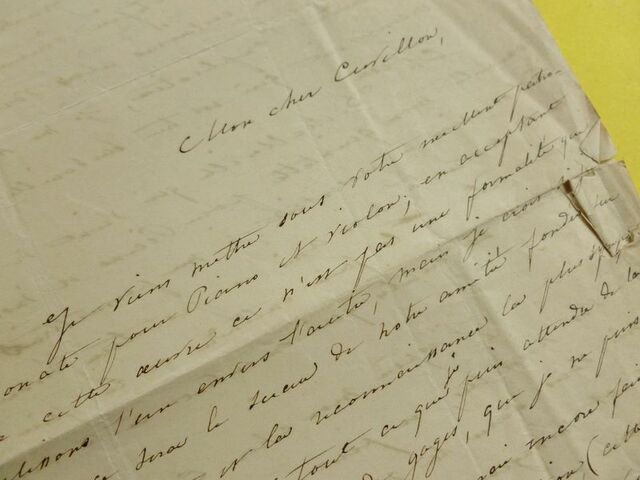 Mon cher Cuvillon,
Je viens mettre sous votre
onate pour Piano et violon, en acceptant
cette œuvre ce n'est pas une formalité que
lissons l'un envers l'autre, mais je crois
sera le sceau de notre amitié fondée sur
et la reconnaissance la plus
tout ce que puis attendre de la
gages, que je ne puis
encore fai